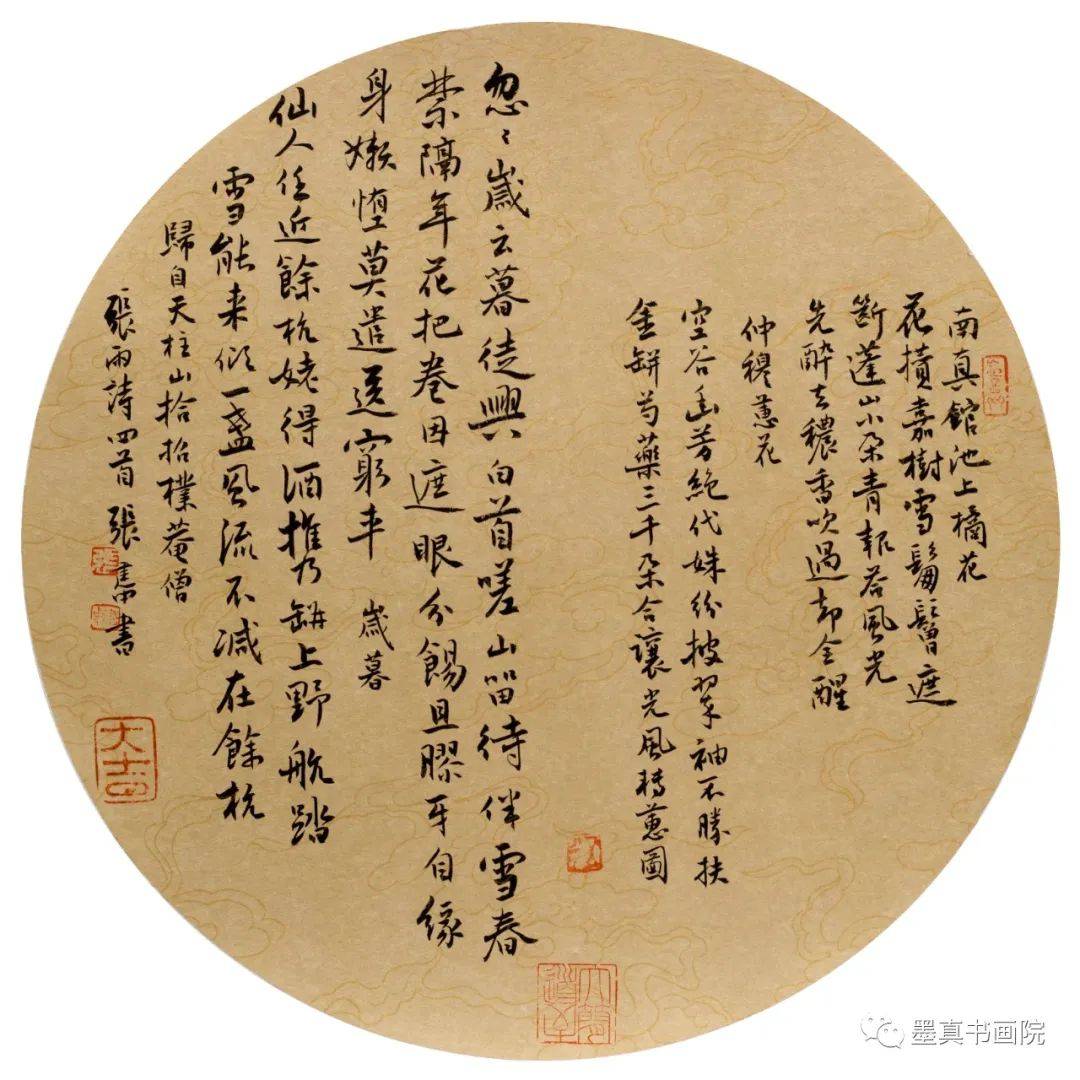 南真館池上橘花
花攢嘉樹雪鬅鬙遮
斷蓬山小朵青報答風光
先醉去穠香吹過却全醒
仲穆蕙花
空谷幽芳絕代姝紛披翠袖不勝扶
金缾芍藥三千朵合讓光風轉蕙圖
忽〻歲云暮徒興白首嗟山留待伴雪春
禁隔年花把卷因遮眼分餳且膠牙自緣
身嬾惰莫遣送窮車 歲暮
仙人任近餘杭姥得酒推乃缾上野航踏
雪能来倾一盞風流不减在餘杭
歸自天柱山拾招樸菴僧
張雨詩四首 張書
大吉
墨真书画院